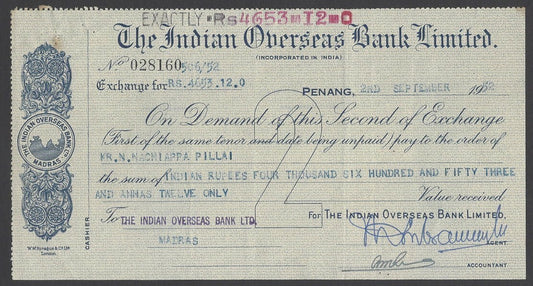 EXACTLY Rs4653=12=0
The Indian Overseas Bank Limited.
(INCORPORATED IN INDIA)
No 028160 506/52
Exchange for RS.4653.12.0
PENANG, 2ND SEPTEMBER 1952
On Demand of this Second of Exchange
(First of the same tenor and date being unpaid) pay to the order of
MR.N.NACHIAPPA PILLAI
the sum of INDIAN RUPEES FOUR THOUSAND SIX HUNDRED AND FIFTY THREE
AND ANNAS TWELVE ONLY Value received
To THE INDIAN OVERSEAS BANK LTD, For THE INDIAN OVERSEAS BANK LIMITED,
MADRAS
AGENT
ACCOUNTANT
CASHIER
2
THE INDIAN OVERSEAS BANK LD.
MADRAS
London.